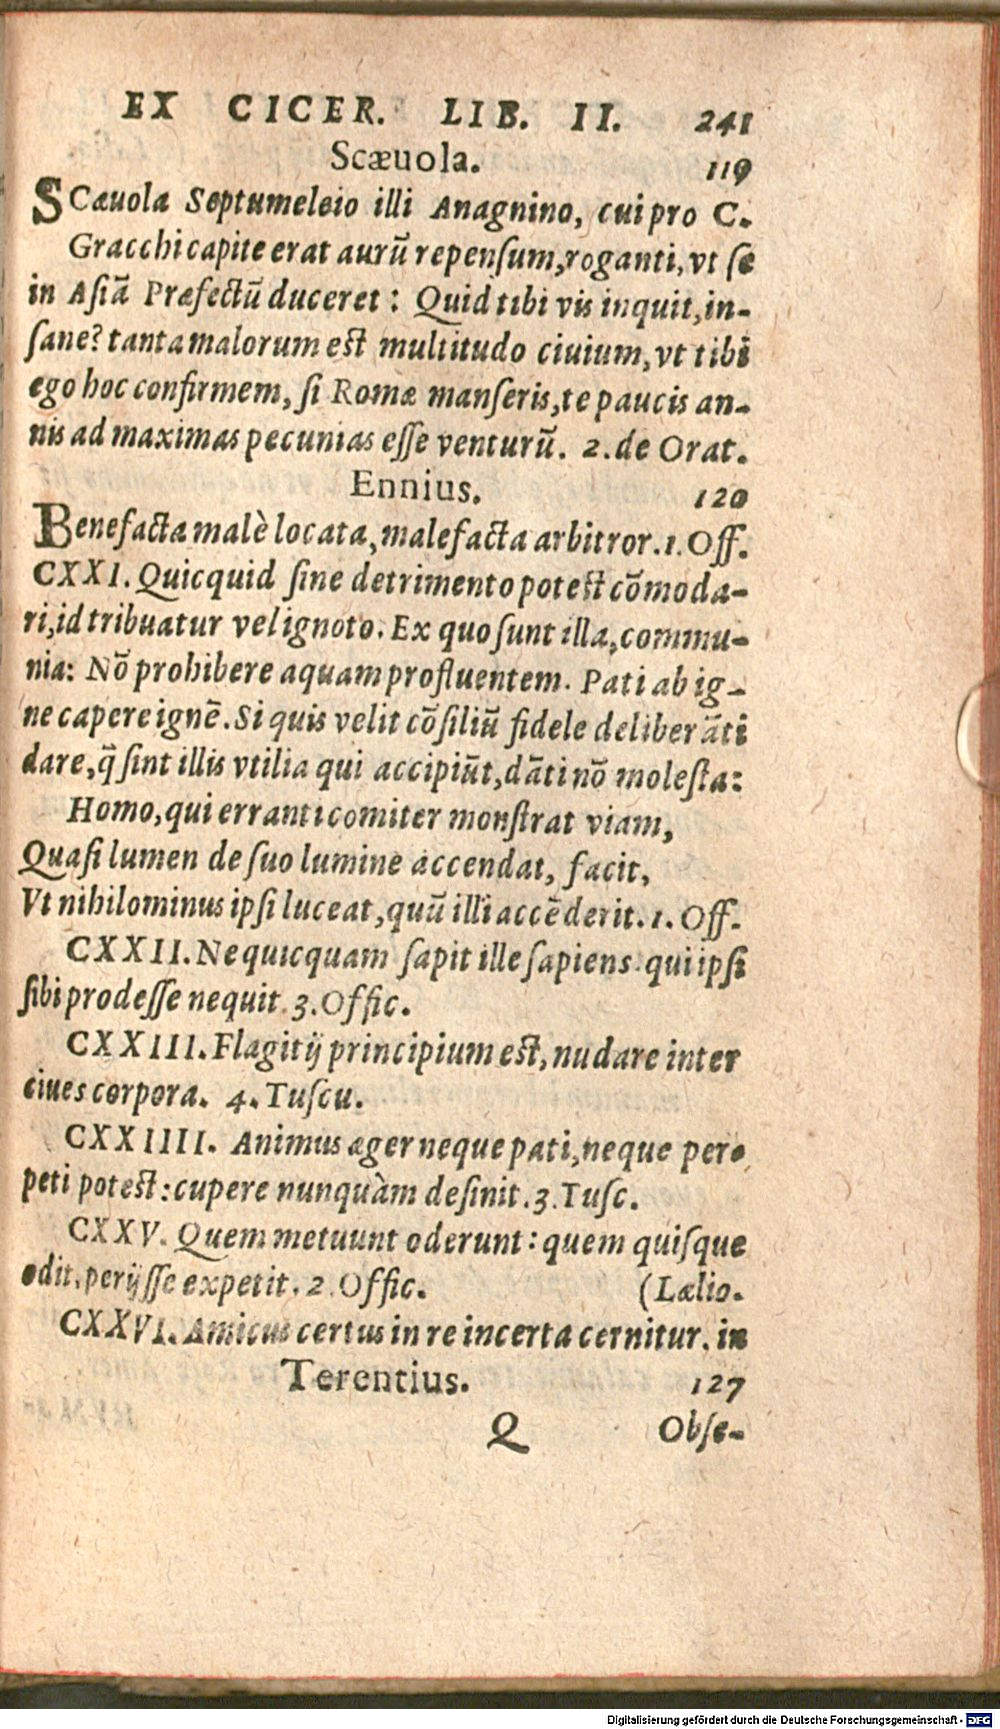 EX CICER. LIB. II. 241
Scæuola. 119
SCæuola Septumeleio illi Anagnino, cui pro C.
Gracchi capite erat aurũ repenſum, roganti, vt ſe
in Aſiã Præfectũ duceret: Quid tibi vis inquit, in-
ſane? tanta malorum est multitudo ciuium, vt tibi
ego hoc confirmem, ſi Romæ manſeris, te paucis an-
nis ad maximas pecunias eſſe venturũ. 2. de Orat.
Ennius. 120
Benefacta malè locata, malefacta arbitror. 1. Off.
CXXI. Quicquid ſine detrimento potest cõmoda-
ri, id tribuatur vel ignoto. Ex quo ſunt illa, commu-
nia: Nõ prohibere aquam profluentem. Pati ab ig-
ne capere ignẽ. Si quis velit cõſiliũ fidele deliberãti
dare, q̃ ſint illis vtilia qui accipiũt, dãti nõ moleſta:
Homo, qui erranti comiter monſtrat viam,
Quaſi lumen de ſuo lumine accendat, facit,
Vt nihilominus ipſi luceat, quũ illi accẽderit. 1. Off.
CXXII. Nequicquam ſapit ille ſapiens qui ipſi
ſibi prodeſſe nequit. 3. Offic.
CXXIII. Flagitij principium est, nudare inter
ciues corpora. 4. Tuſcu.
CXXIIII. Animus æger neque pati, neque per-
peti potest: cupere nunquàm deſinit. 3. Tuſc.
CXXV. Quem metuunt oderunt: quem quiſque
odit, perijſſe expetit. 2. Offic. (Lælio.
CXXVI. Amicus certus in re incerta cernitur. in
Terentius. 127
Q Obſe-
Digitalisierung gefördert durch die Deutsche Forschungsgemeinschaft - DFG